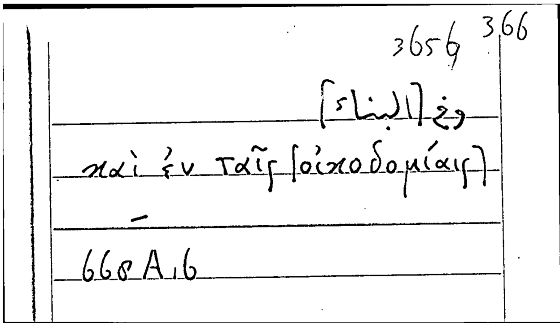 366
3656
وفي [البناء]
καὶ ἐν ταῖς [οἰκοδομίαις]
–
668 A,6